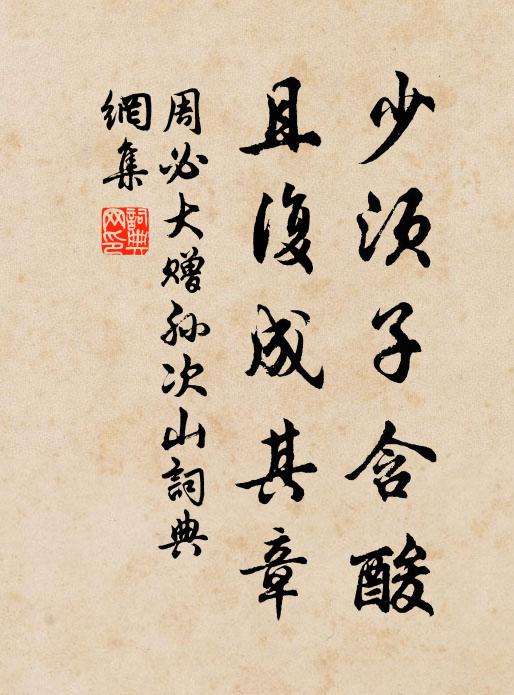 少須子含酸
且復成其章
周必大贈孫次山詞典
網集
詞典網印